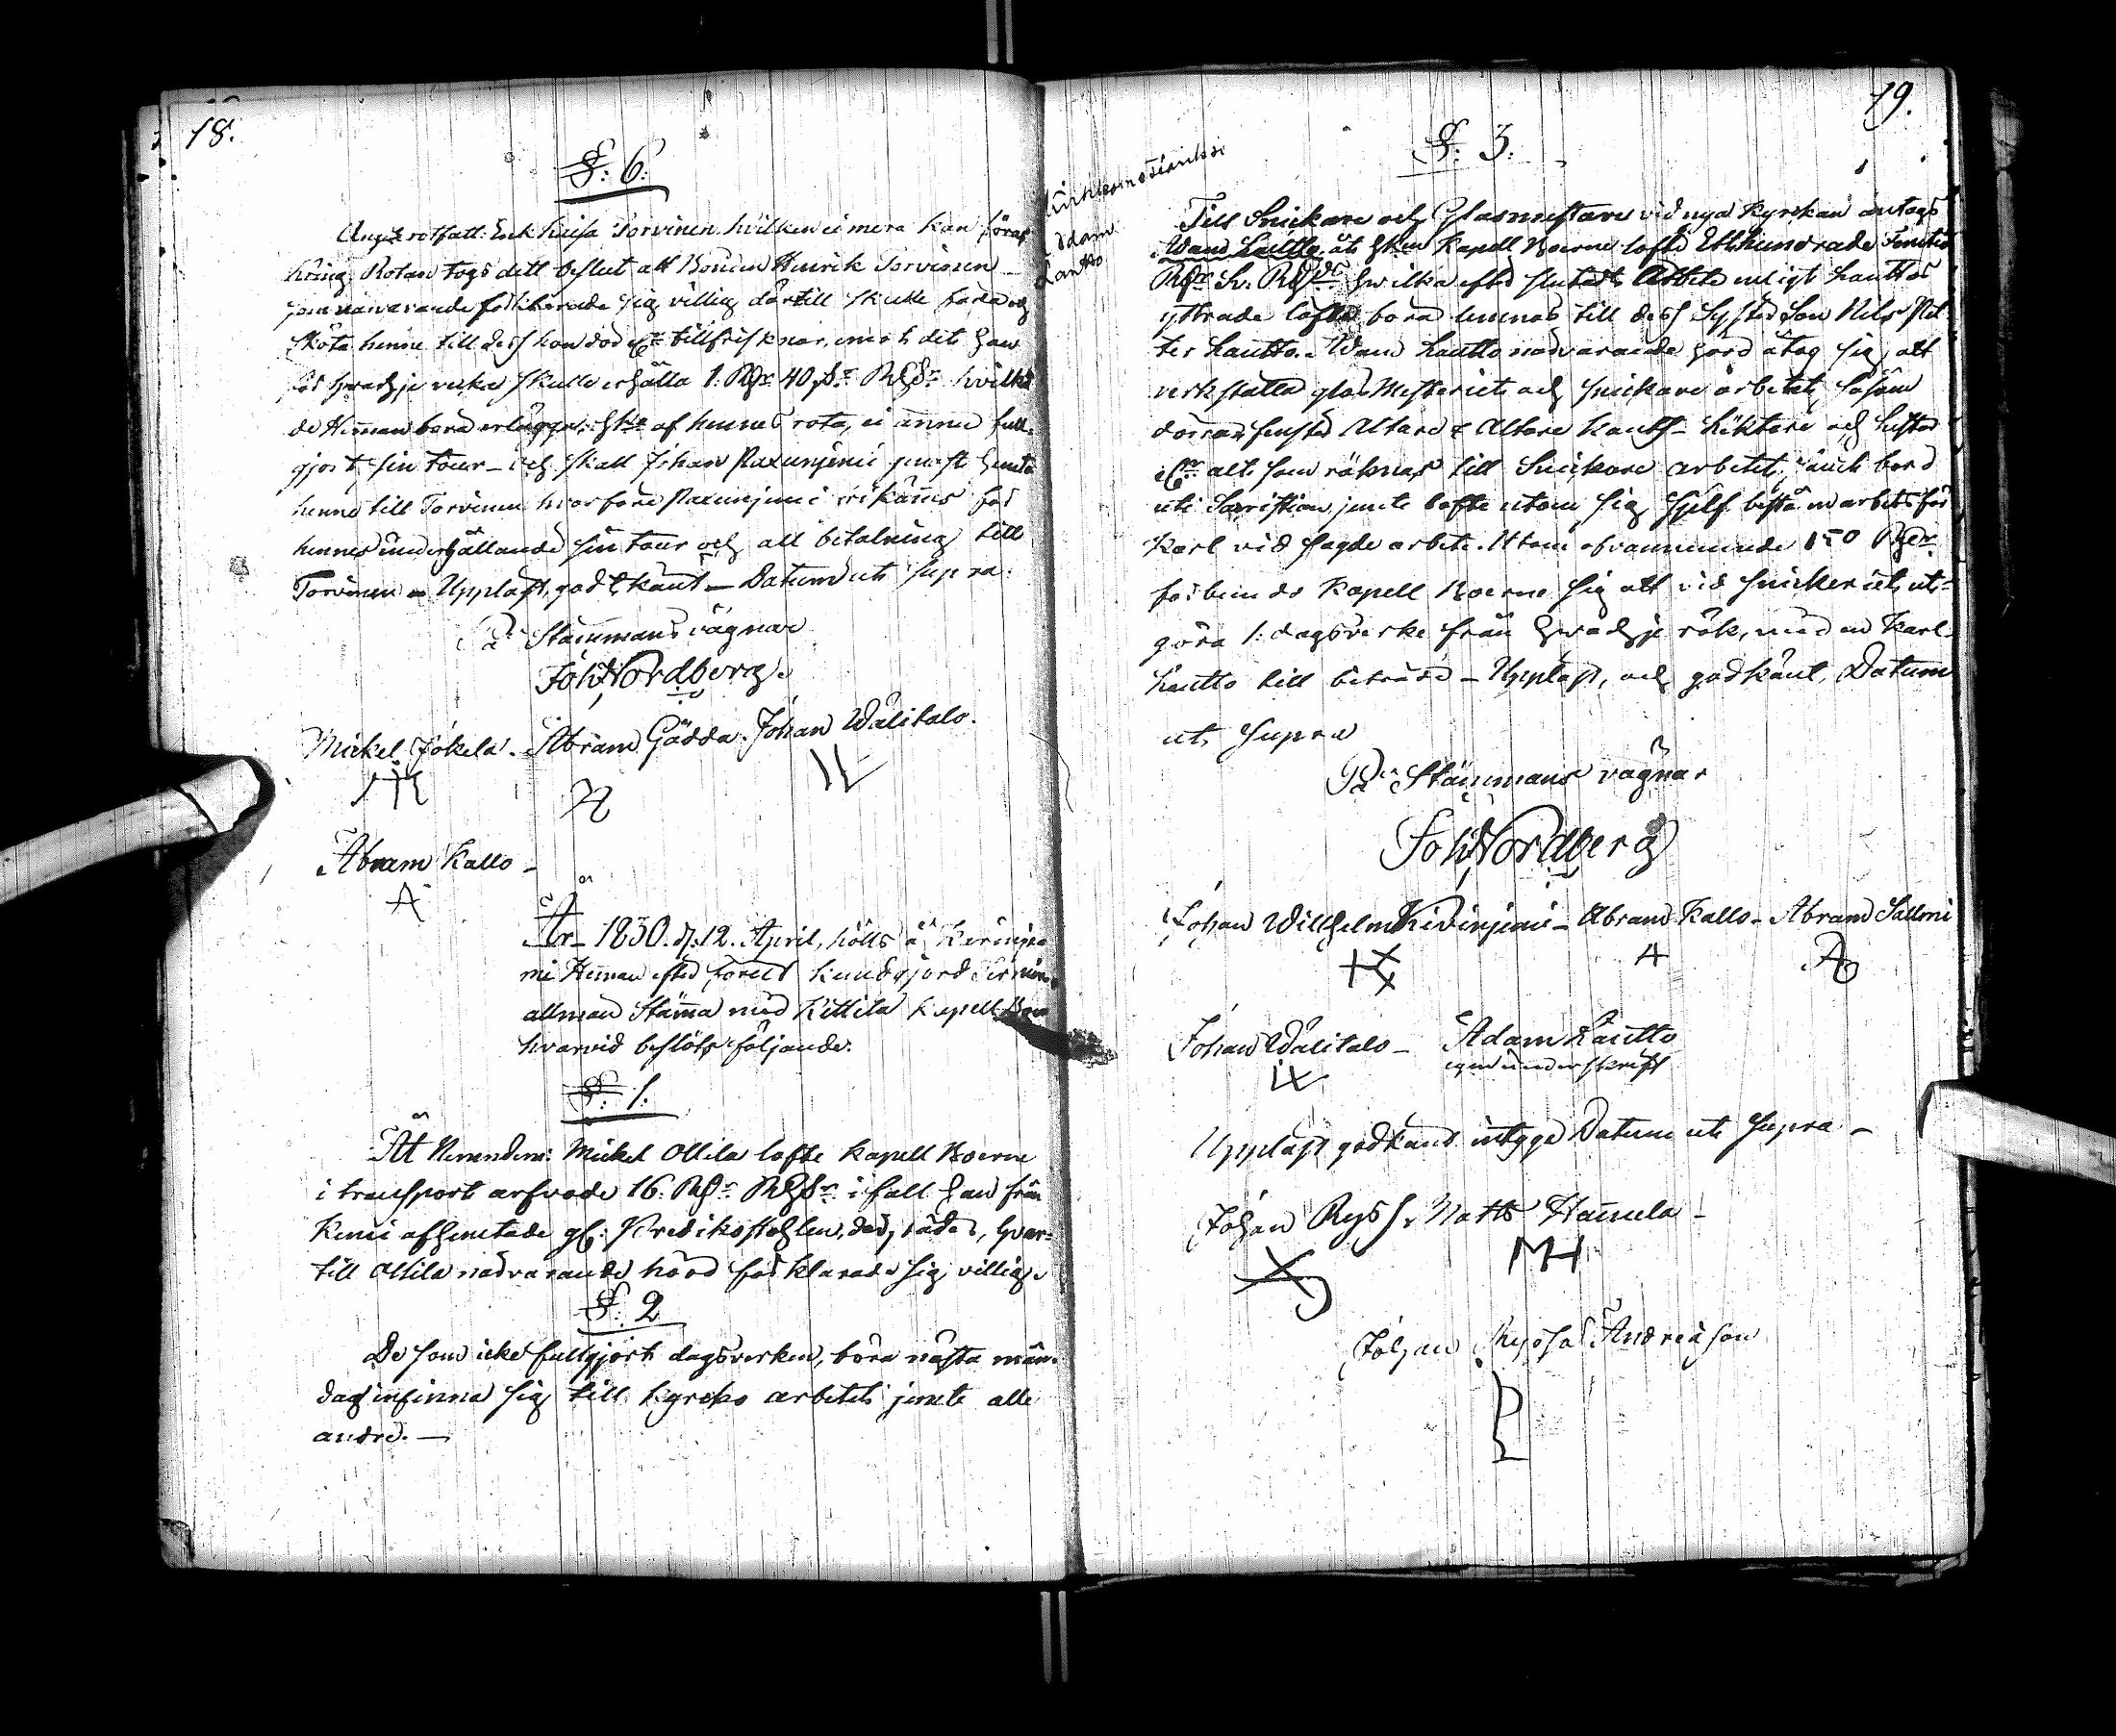 18.
§: 6:
Ang:de rotfatt: Enk: Kaisa Torvinen hvilken ei mera kan föras
kring Rotan togs dett beslut att Bonden Henrik Torvinen
som närvarande förklarade sig villig dertill skulle föda och
sköta henne till dess hon dör eller tillfrisknar, emot det han
för hvarje vecka skulle erhålla 1: Rdr 40 s:r RGS:r hvilka
de Hemman böra erlägga, som af hennes rota, ei ännu full-
gjort sin tour - och skall Johan Paxunjemi genast hemta
henne till Torvinen hvarföre Paxunjemi erkännes för
hennes underhållande sin tour och all betalning till
Torvinen - Uppläst, godkänt - Datum ut supra:
På Stämmans vägnar
Joh: Nordberg.
Mickel Jokela. Abram Gädda. Johan Wälitalo.
Abram Kallo -
A
År 1830. d. 12. April, hölls å Kerinje-
mi Heman efter förelt kundgjord Termin,
allmän Stämma med Kittila Kapell Boer
hvarvid beslöts följande.
§: 1:
Åt Nemndem: Mickel Ollila lofte Kapell Boerne
i transport arfvode 16: Rdr RGS:r i fall han från
Kemi afhemtade gl: Predikostohlen, der, råder, hvar-
till Ollila närvarande hörd förklarade sig villig.
§: 2
De som icke fullgjort dagsverken, böra nästa mån-
dag infinna sig till kyrko arbetet jemte alle
andre. —
19.
§: 3.
Kirkkomestariksi
Adam
Lautto
Till Snickare och Glasmestare vid nya Kyrckan antogs
Adam Lautto, åt hken Kapell Boerne lofte Etthundrade Femtio
Rdr Sv. RGS:r hvilka efter slutadt Arbete enligt Lauttos
yttrade löfte böra lemnas till dess Syster Son Nils Pet-
ter Lautto. Adam Lautto närvarande hörd åtog sig att
verkställa glas Mesteriet och snickare arbetet, såsom
dörrar, fenster Altare & Altare krants - Läktare och Lufter
alt som räknas till Snickare arbetet, samt bord
uti Sacristian, jemte lofte utom sig sjelf bestå en arbetsför
Karl vid sagde arbete. Utom ofvannemnde 150 Rdr
förbindo Kapell Boerne sig att vid snickeriet, ut-
göra 1: dagsverke från hvarje rök, med en Karl
Lautto till biträde - Uppläst, och godkänt, Datum
ut supra
På Stämmans vägnar
Joh: Nordberg
Johan Willhelm Kivinjemi - Abram Kallo - Abram Salloni
A
Johan Wälitalo - Adam Lautto
egen underskrift
Uppläst godkänd intyga Datum ut supra -
Johan Ryss. Matts Hannula -
MH
Johan Ryssa Andreasson